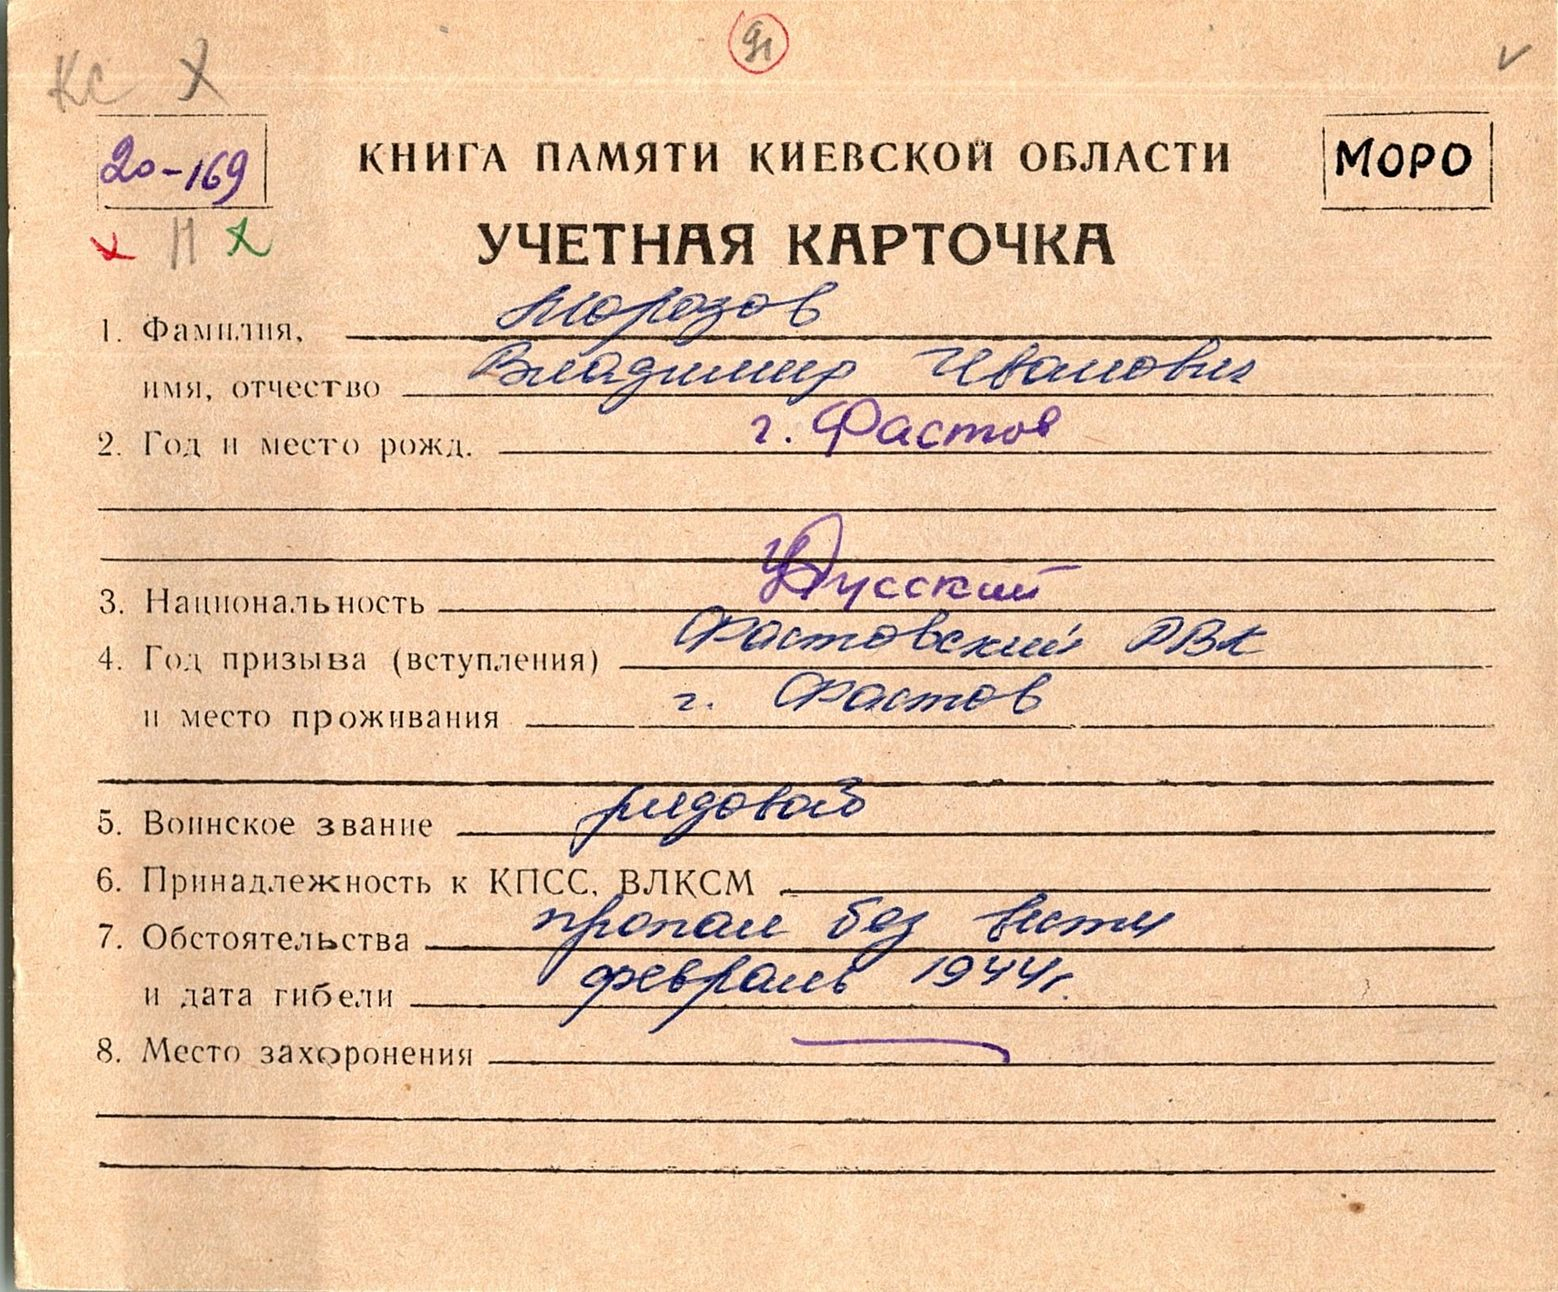 Кс Х
91
20-169
КНИГА ПАМЯТИ КИЕВСКОЙ ОБЛАСТИ
МОРО
х Н х
УЧЕТНАЯ КАРТОЧКА
1. Фамилия, Морозов
имя, отчество Владимир Иванович
2. Год и место рожд. г. Фастов
3. Национальность Русский
4. Год призыва (вступления) Фастовский РВК
и место проживания г. Фастов
5. Воинское звание рядовой
6. Принадлежность к КПСС, ВЛКСМ
7. Обстоятельства пропал без вести
и дата гибели февраль 1944г.
8. Место захоронения